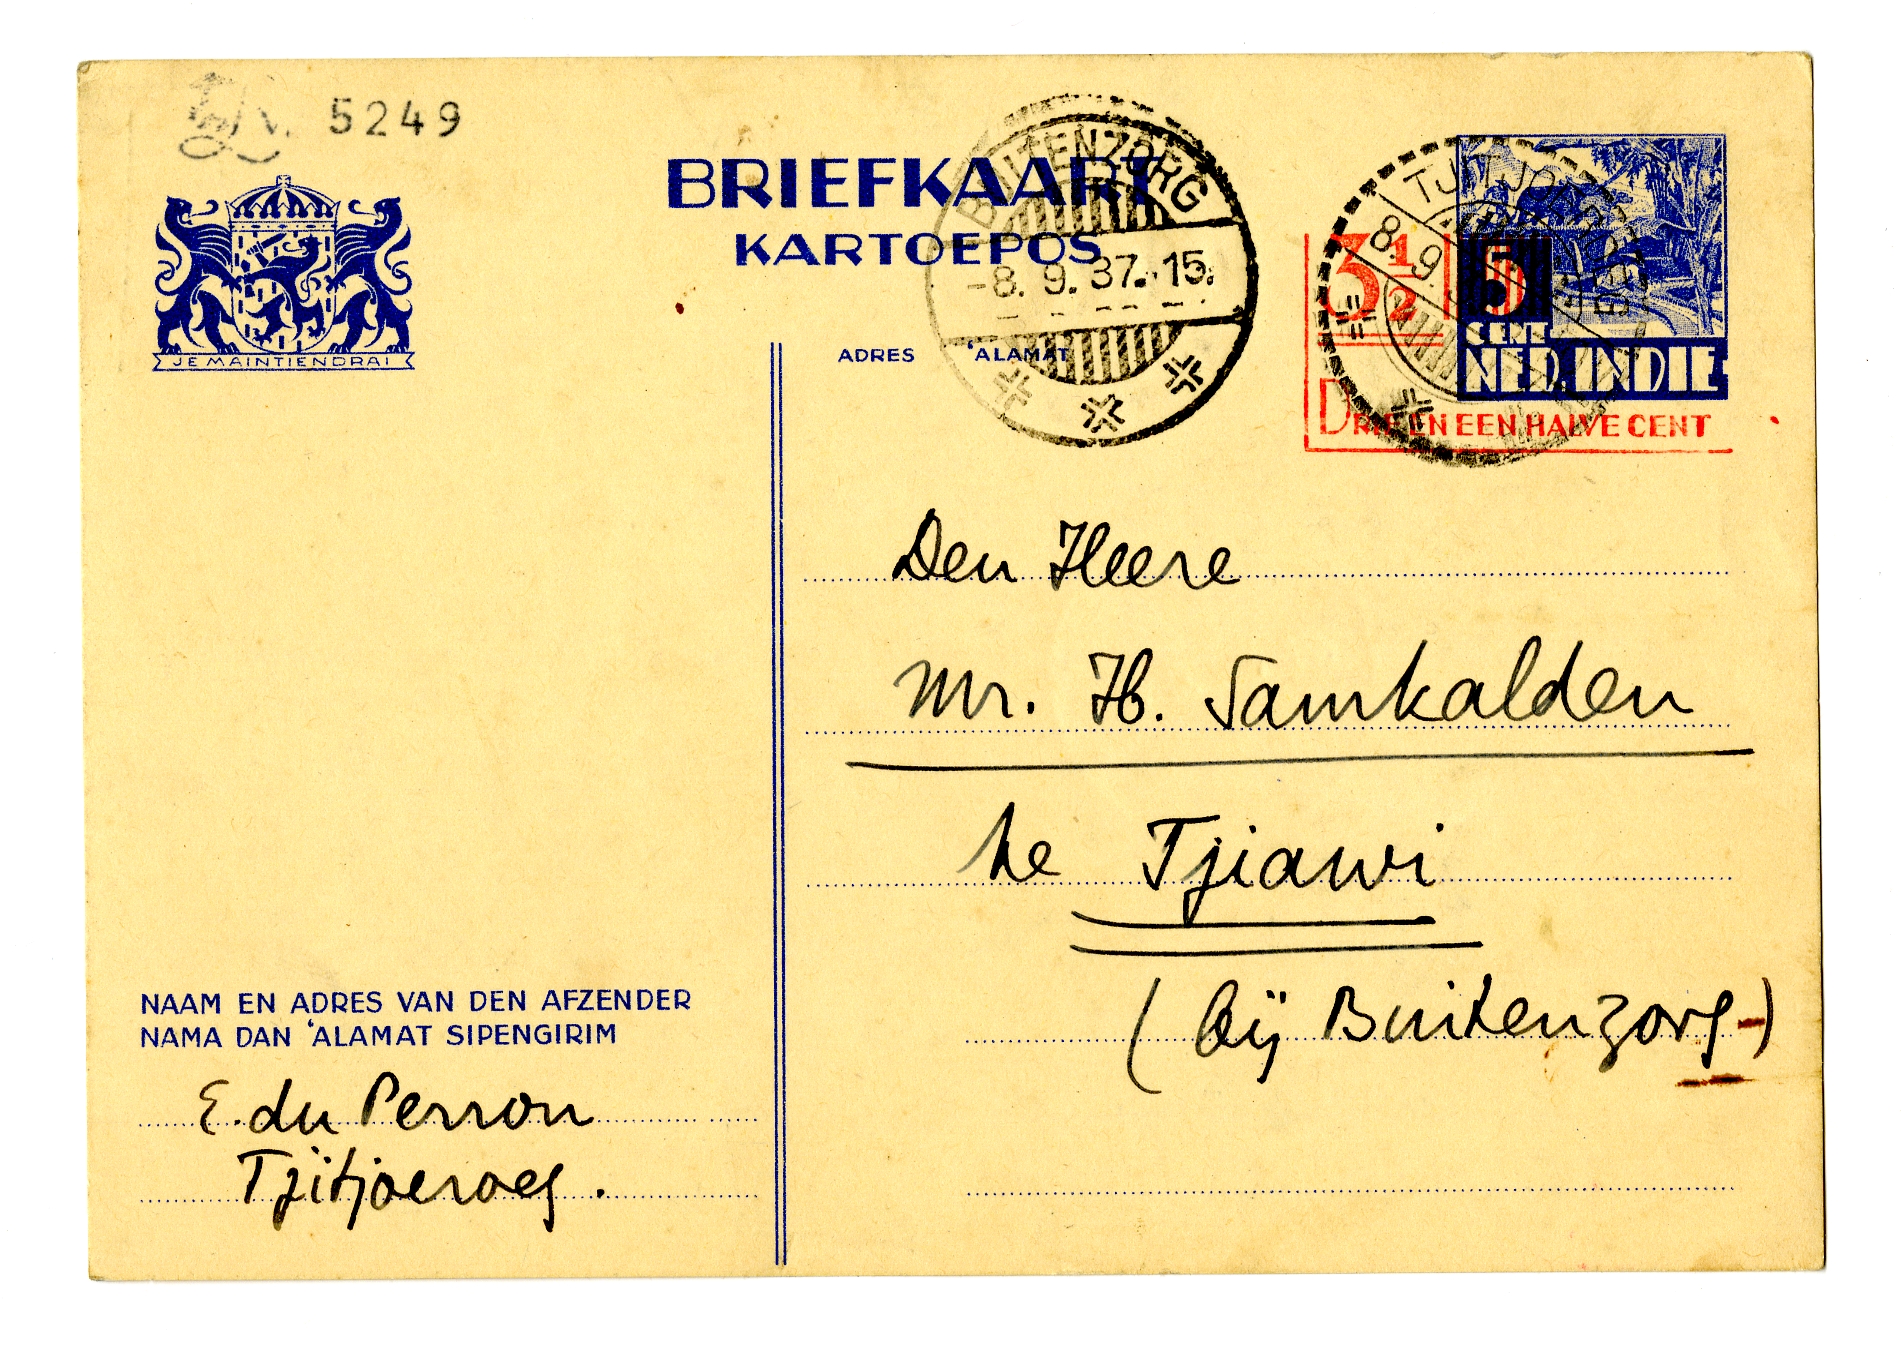 5249
BRIEFKAART
KARTOEPOS
JE MAINTIENDRAI
BUITENZORG
-8. 9. 37.-15.
TJITJOEROEG
8. 9.
3½
5
CENT
NED. INDIE
DRIE EN EEN HALVE CENT
ADRES ‘ALAMAT
Den Heere
Mr. H. Samkalden
te Tjiawi
(bij Buitenzorg-)
NAAM EN ADRES VAN DEN AFZENDER
NAMA DAN ‘ALAMAT SIPENGIRIM
E. du Perron
Tjitjoeroeg.